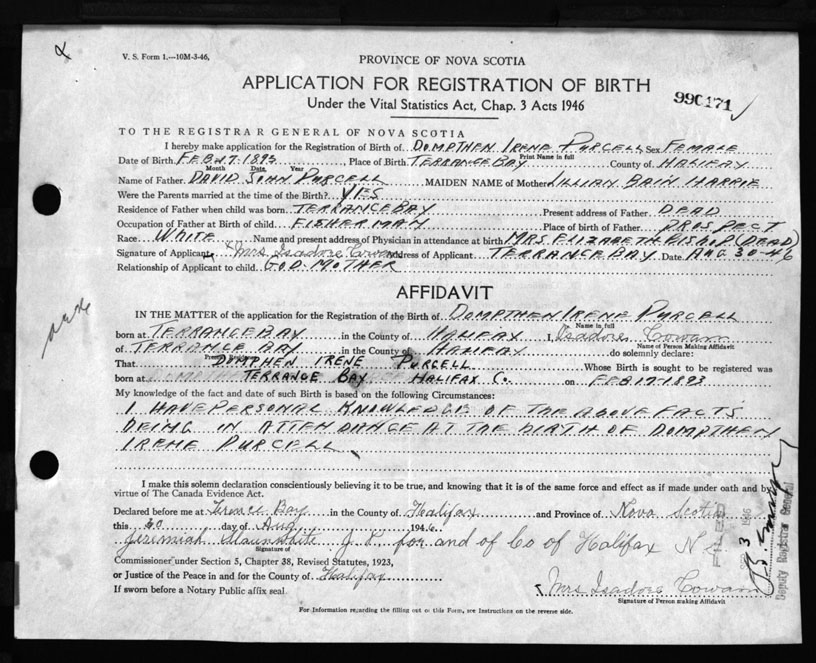 V. S. Form 1.—10M-3-46,
PROVINCE OF NOVA SCOTIA
APPLICATION FOR REGISTRATION OF BIRTH
Under the Vital Statistics Act, Chap. 3 Acts 1946
990171
TO THE REGISTRAR GENERAL OF NOVA SCOTIA
I hereby make application for the Registration of Birth of DOMPTHEN IRENE PURCELL Sex FEMALE
Print Name in full
Date of Birth FEB 17-1893, Place of Birth TERRANCE BAY County of HALIFAX
Month Date Year
Name of Father DAVID JOHN PURCELL MAIDEN NAME of Mother LILLIAN BAIN HARRIE
Were the Parents married at the time of the Birth? YES
Residence of Father when child was born TERRANCE BAY Present address of Father DEAD
Occupation of Father at Birth of child FISHERMAN Place of birth of Father PROSPECT
Race WHITE Name and present address of Physician in attendance at birth MRS. ELIZABETH BISHOP (DEAD)
Signature of Applicant x Mrs Isadore Cowan Address of Applicant TERRANCE BAY Date AUG 30-46
Relationship of Applicant to child GOD-MOTHER
AFFIDAVIT
IN THE MATTER of the application for the Registration of the Birth of DOMPTHEN IRENE PURCELL
Name in full
born at TERRANCE BAY in the County of HALIFAX I, Isadore Cowan
Name of Person Making Affidavit
of TERRANCE BAY in the County of HALIFAX do solemnly declare:
That DOMPTHEN IRENE PURCELL Whose Birth is sought to be registered was
born at TERRANCE BAY HALIFAX C. on FEB 17-1893
My knowledge of the fact and date of such Birth is based on the following Circumstances:
I HAVE PERSONAL KNOWLEDGE OF THE ABOVE FACTS
BEING IN ATTENDANCE AT THE BIRTH OF DOMPTHEN
IRENE PURCELL
I make this solemn declaration conscientiously believing it to be true, and knowing that it is of the same force and effect as if made under oath and by
virtue of The Canada Evidence Act.
Declared before me at Terence Bay in the County of Halifax and Province of Nova Scotia
this 30 day of Aug 1946
Jeremiah Slaunwhite J. P. for and of Co of Halifax N S
Signature of
Commissioner under Section 5, Chapter 38, Revised Statutes, 1923,
or Justice of the Peace in and for the County of Halifax
If sworn before a Notary Public affix seal
Mrs Isadore Cowan
Signature of Person Making Affidavit
For Information regarding the filling out of this Form, see Instructions on the reverse side.
FILED
3 1946
Deputy Registrar General